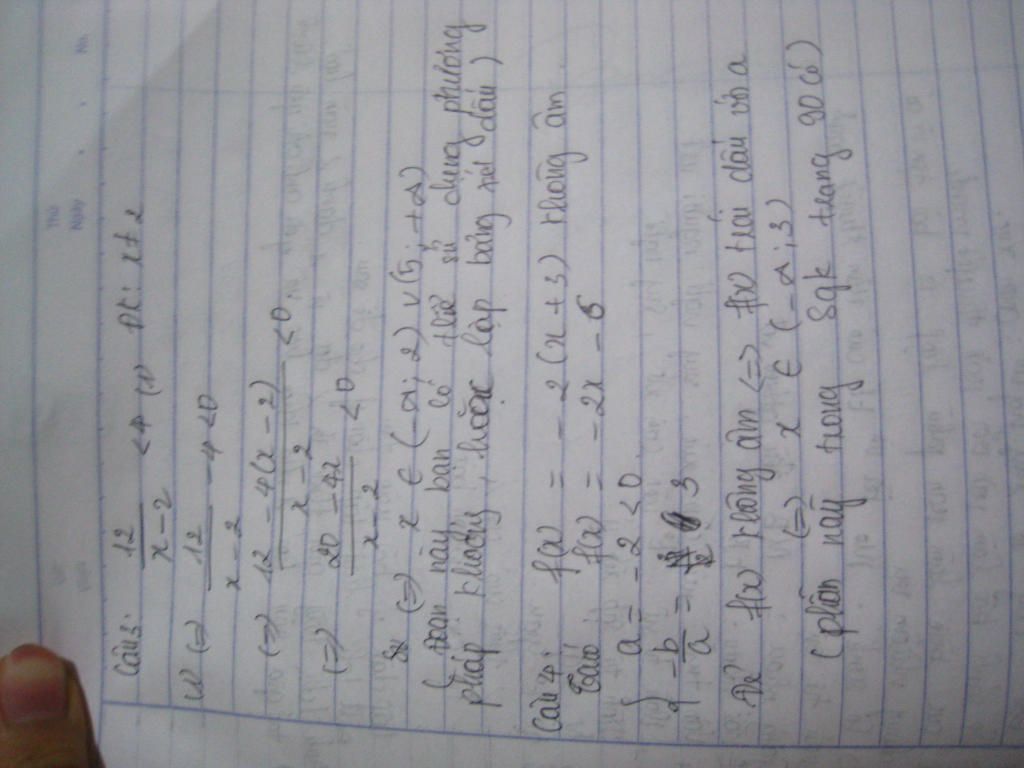 Câu 3: 12/(x-2) < 4 (1) ĐK: x ≠ 2
(1) <=> 12/(x-2) - 4 < 0
<=> (12 - 4(x-2))/(x-2) < 0
<=> (20 - 4x)/(x-2) < 0
<=> x ∈ (-∞; 2) ∨ (5; +∞)
(đoạn này bạn có thể sử dụng phương
pháp khoảng, hoặc lập bảng xét dấu)
Câu 4: f(x) = -2(x+3) không âm
f(x) = -2x - 6
a = -2 < 0
-b/a = 3
Để f(x) không âm <=> f(x) trái dấu với a
<=> x ∈ (-∞; 3)
(phần này trong sgk trang 90 có)